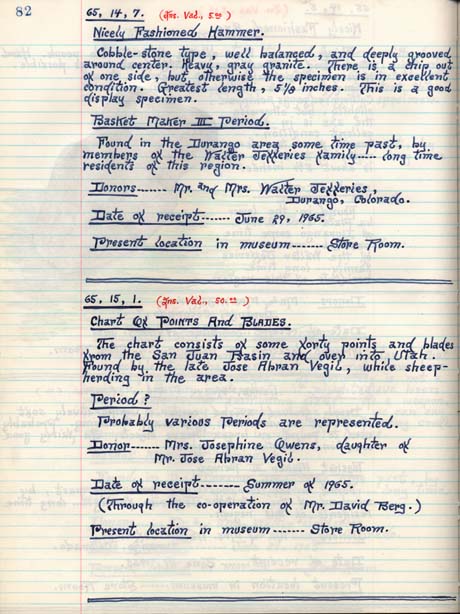 82
65, 14, 7. (Ins. Val., 5.00)
Nicely Fashioned Hammer.
Cobble-stone type, well balanced, and deeply grooved
around center. Heavy, gray granite. There is a chip out
of one side, but otherwise the specimen is in excellent
condition. Greatest length, 5 1/8 inches. This is a good
display specimen.
Basket Maker III Period.
Found in the Durango area some time past, by
members of the Walter Jefferies family---- long time
residents of this region.
Donors------ Mr. and Mrs. Walter Jefferies,
Durango, Colorado.
Date of receipt------- June 29, 1965.
Present location in museum------- Store Room.
65, 15, 1. (Ins. Val., 50.00)
Chart Of Points And Blades.
The chart consists of some forty points and blades
from the San Juan Basin and over into Utah.
Found by the late Jose Abran Vegil, while sheep-
herding in the area.
Period?
Probably various Periods are represented.
Donor------- Mrs. Josephine Owens, daughter of
Mr. Jose Abran Vegil.
Date of receipt-------- Summer of 1965.
(Through the co-operation of Mr. David Berg.)
Present location in museum------- Store Room.